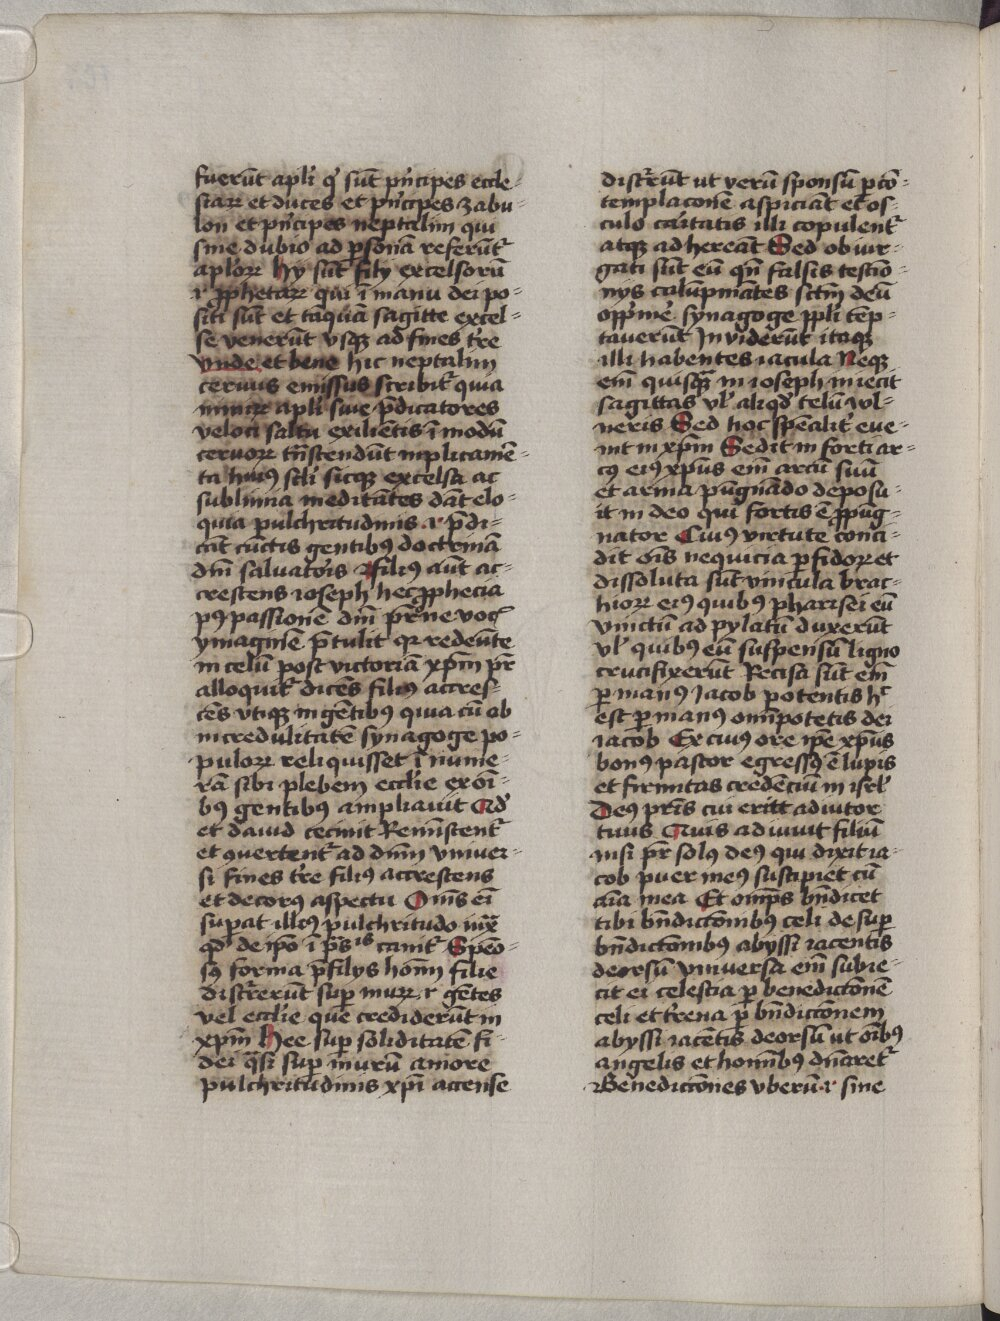 fuerūt apli q' sūt pn̄cipes eccle-
siaꝝ et duces et pn̄cipes zabu-
lon et pn̄cipes neptalim qui
sine dubio ad ꝑsonā referūt᷑
aploꝝ hij sūt filij excelsorū
⁊ ꝓphetaꝝ qui ī manu dei po-
siti sūt et tāquā sagitte excel-
se venerūt vsqꝫ ad fines t're
vnde et bene hic neptalim
ceruus emissus scribit᷑ quia
apli siue p̄dicatores
veloci saltu exilientis ī modū
ceruoꝝ
ta huiꝯ scli sicqꝫ excelsa ac
sublimia meditātes dāt elo-
quia pulchritudinis ⁊ p̄di-
cāt cūctis gentibꝯ doctrinā
dm̄ saluatoris ⁊ filiꝯ aūt ac-
crescens ioseph hec ꝓphecia
pꝯ passionē dm̄ pr̄ne voc̄
ymaginē p̄tulit qꝛ redeūte
in celū post victoriā xp̄m pr̄
alloquit᷑ dicēs filiꝯ accres-
cēs vtiqꝫ in gētibꝯ quia cū ob
incredulitatē synagoge po-
puloꝝ reliquisset ī nume-
rā sibi plebem eccl'ie ex oī-
bꝯ gentibꝯ ampliauit Qd'
et dauid cecinit Reminiscent᷑
et ꝯuertent᷑ ad dn̄m vniuer-
si fines t're filiꝯ accrescens
et decorꝯ aspectu Om̄s eī
supat illiꝯ pulchritudo iux̄
qd' de ip̄o ī ps̄is canit᷑ Specō-
sꝯ forma p̄ filijs hom̄ filie
discr̄rerūt sup muꝝ ⁊ gētes
vel eccl'ie que crediderūt in
xp̄m Hee sup soliditatē fi-
dei q̄si sup murū amore
pulchritudinis xp̄i accense
discr̄rūt ut verū sponsū ꝑ cō-
templacōnē aspiciāt et os-
culo caritatis illi copulent᷑
atqꝫ adhereāt Sed obiur-
gati sūt eū qn̄ falsis testio-
nijs calūpniātes sctm̄ deū
opp̄me synagoge ppli tēp-
tauerūt Inviderūt itaqꝫ
illi habentes iacula Neqꝫ
em̄ quisqꝫ in ioseph iniecit
sagittas vl' aliqd' telū vl-
neris Sed hoc spēalit' eue-
nit in xp̄m Sedit in forti ar-
cꝯ eiꝯ xp̄us em̄ arcū suū
et arma pūgnādo deposu-
it in deo qui fortis ē ꝓpug-
nator Cuiꝯ virtute conci-
dit ōis nequicia ꝑfidoꝝ et
dissoluta sūt vincula brac-
hioꝝ eiꝯ quibꝯ pharisei eū
vinctū ad pylatū duxerūt
vl' quibꝯ eū suspensū ligno
crucifixerūt Recisa sūt em̄
ꝑ manꝯ Iacob potentis hc̄
est ꝑ manꝯ om̄ipotētis dei
iacob Ex cuiꝯ ore ip̄e xp̄us
bonꝯ pastor egressꝯ ē lupis
et firmitas credēciū in isrl'
Deꝯ pr̄is cui eritt adiutor
tuus Quis adiuuit filiū
nisi pr̄ solꝯ deꝯ qui dixit ia-
cob puer meꝯ suscipiet eū
aīa mea Et om̄ps bn̄dicet
tibi bn̄dictōnibꝯ celi desup
bn̄dictōnibꝯ abyssi iacentis
deorsū vniuersa em̄ subie-
cit ei celestia ꝑ benedictōnē
celi et t'rena ꝑ bn̄dictōnem
abyssi iacētis deorsū ut oīb'ꝯ
angelis et homībꝯ dn̄aret᷑
Benedictōnes vberū ⁊ sine